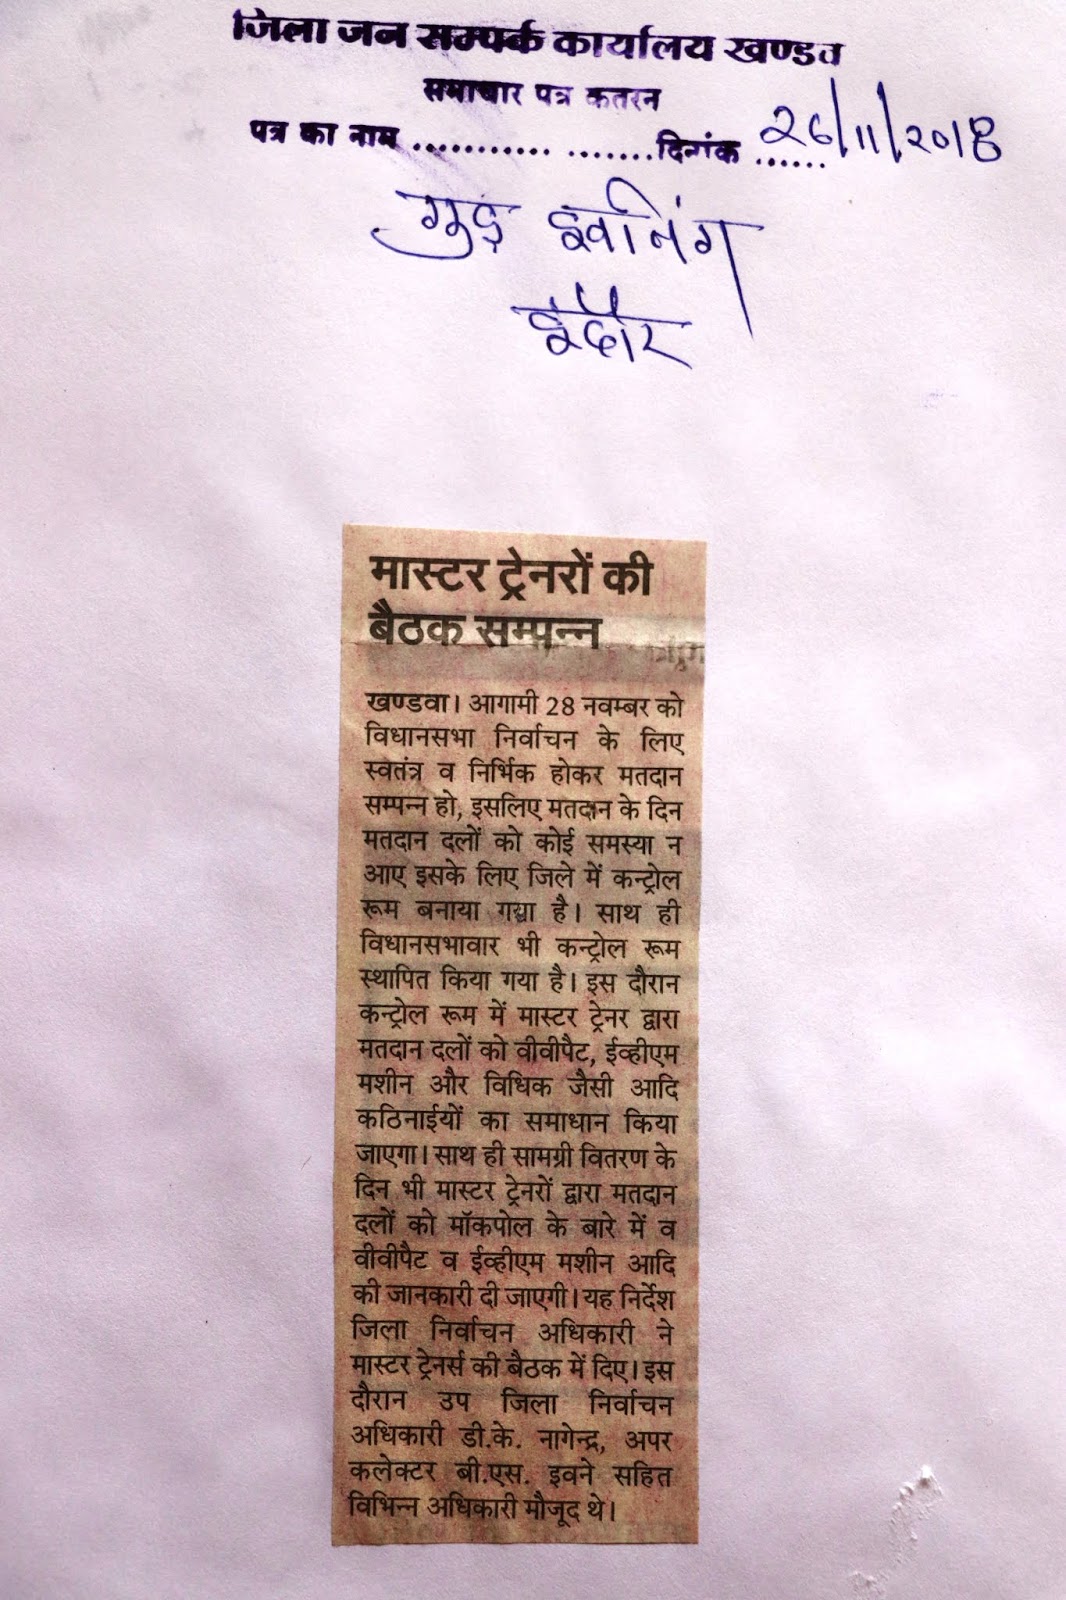 जिला जन सम्पर्क कार्यालय खण्डवा
समाचार पत्र कतरन
पत्र का नाम ........... .......दिनांक ...... 26/11/2018
गुड इवनिंग
इंदौर
मास्टर ट्रेनरों की
बैठक सम्पन्न
खण्डवा। आगामी 28 नवम्बर को
विधानसभा निर्वाचन के लिए
स्वतंत्र व निर्भिक होकर मतदान
सम्पन्न हो, इसलिए मतदान के दिन
मतदान दलों को कोई समस्या न
आए इसके लिए जिले में कन्ट्रोल
रूम बनाया गया है। साथ ही
विधानसभावार भी कन्ट्रोल रूम
स्थापित किया गया है। इस दौरान
कन्ट्रोल रूम में मास्टर ट्रेनर द्वारा
मतदान दलों को वीवीपैट, ईव्हीएम
मशीन और विधिक जैसी आदि
कठिनाईयों का समाधान किया
जाएगा। साथ ही सामग्री वितरण के
दिन भी मास्टर ट्रेनरों द्वारा मतदान
दलों को मॉकपोल के बारे में व
वीवीपैट व ईव्हीएम मशीन आदि
की जानकारी दी जाएगी। यह निर्देश
जिला निर्वाचन अधिकारी ने
मास्टर ट्रेनर्स की बैठक में दिए। इस
दौरान उप जिला निर्वाचन
अधिकारी डी.के. नागेन्द्र, अपर
कलेक्टर बी.एस. इवने सहित
विभिन्न अधिकारी मौजूद थे।